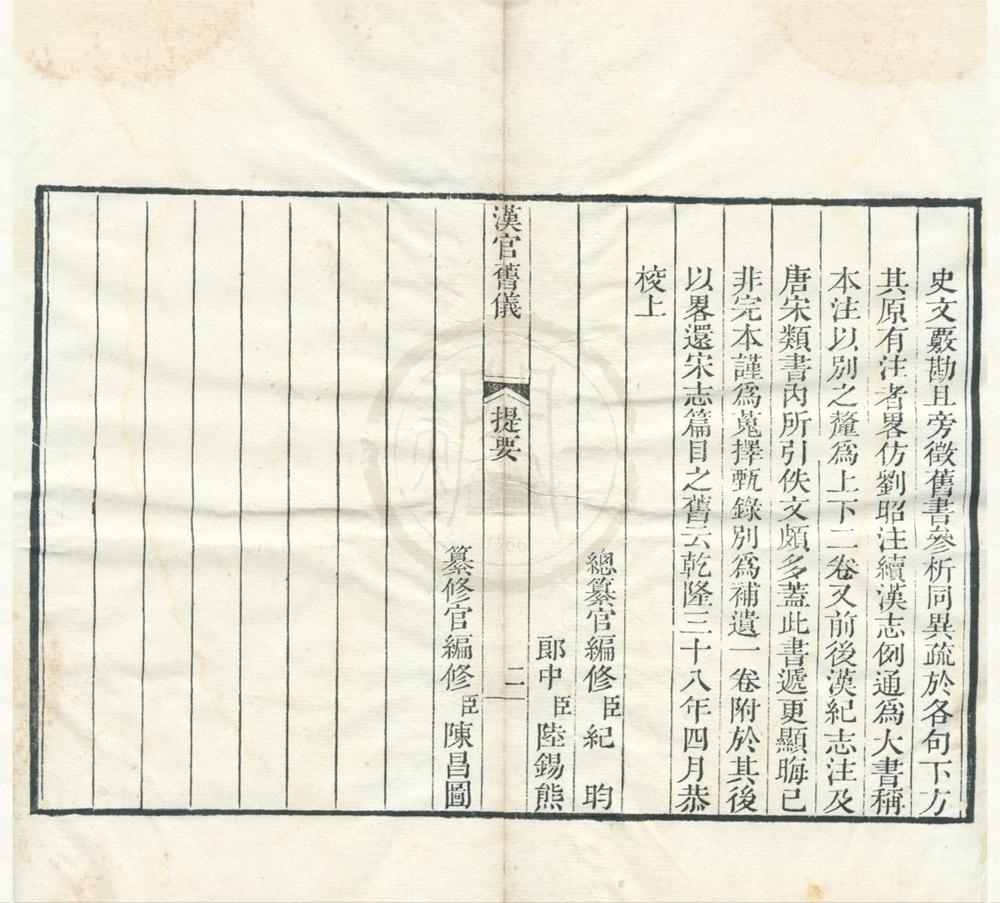 史文覈勘且旁徵舊書參析同異疏於各句下方
其原有注者畧仿劉昭注續漢志例通爲大書稱
本注以別之釐爲上下二卷又前後漢紀志注及
唐宋類書內所引佚文頗多蓋此書遞更顯晦已
非完本謹爲蒐擇甄錄別爲補遺一卷附於其後
以畧還宋志篇目之舊云乾隆三十八年四月恭
校上
總纂官編修臣紀昀
郎中臣陸錫熊
漢官舊儀 提要 二
纂修官編修臣陳昌圖